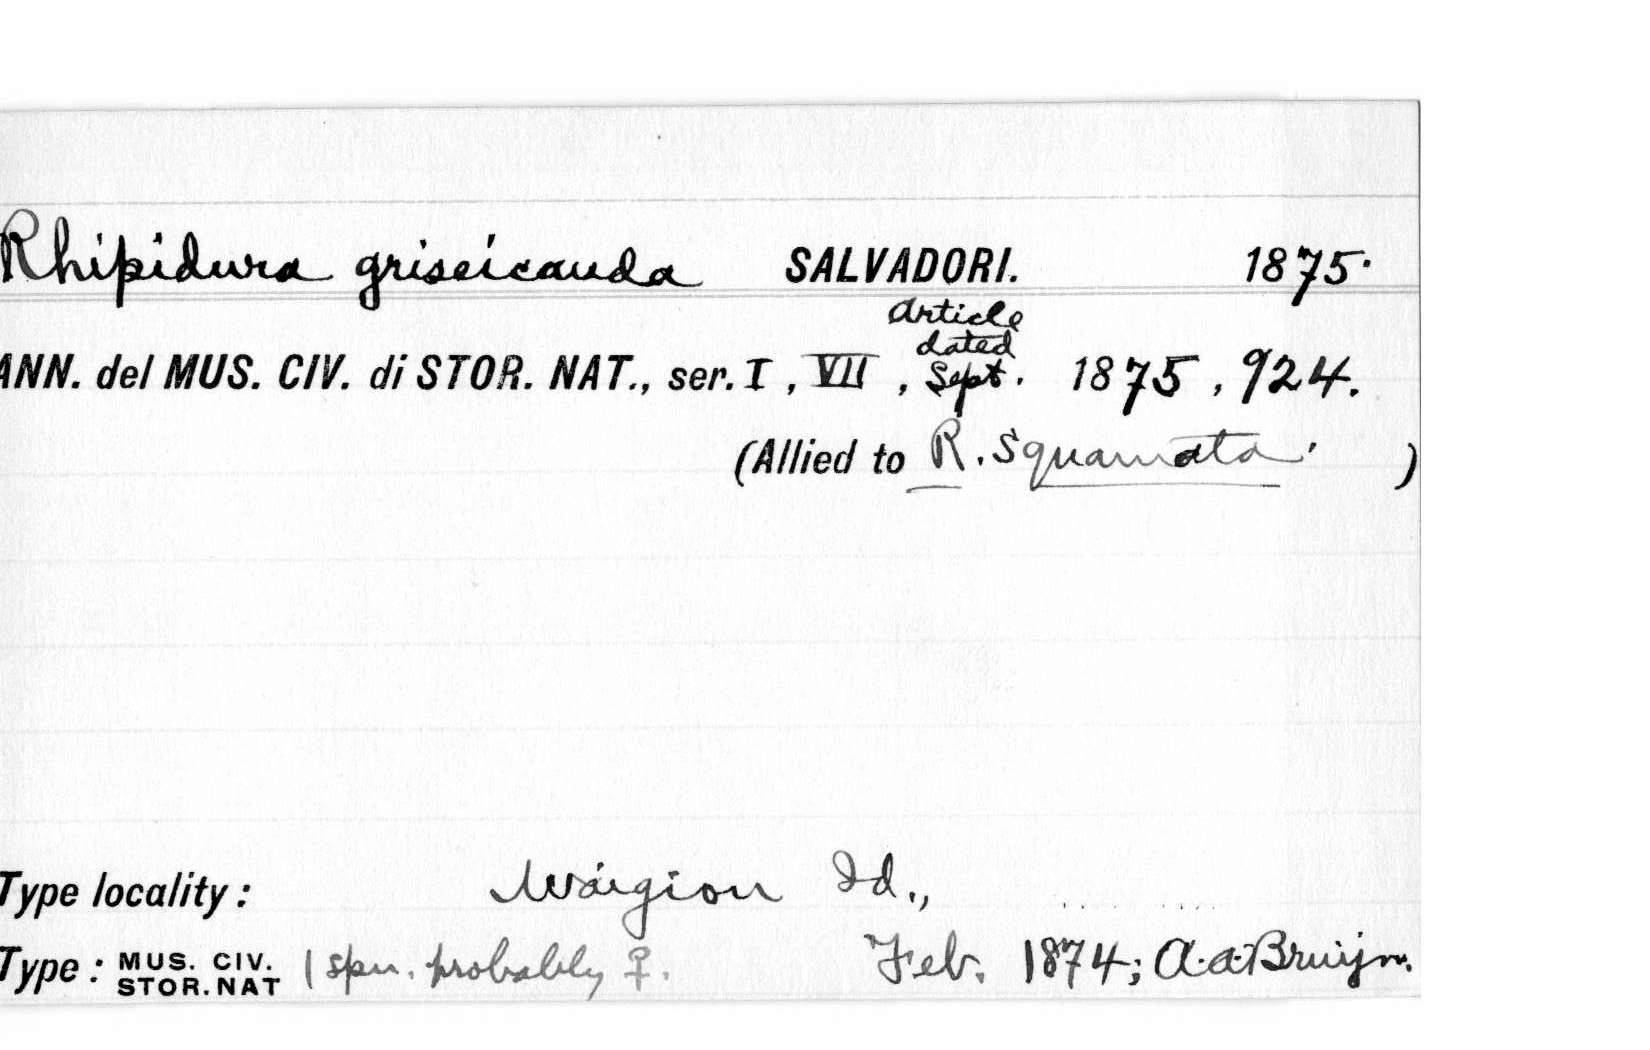 Rhipidura griseicauda SALVADORI. 1875.
Article
dated
ANN. del MUS. CIV. di STOR. NAT., ser. I, VII, Sept. 1875, 924.
(Allied to R. Squamata. )
Type locality: Waigiou Id.,
Type: MUS. CIV. STOR. NAT 1 spn. probably ♀. Feb. 1874; A.A. Bruijn.